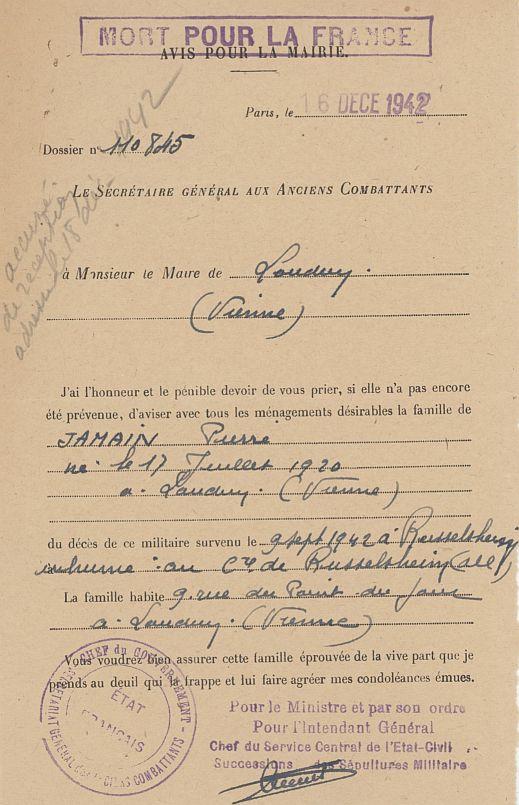 MORT POUR LA FRANCE
AVIS POUR LA MAIRIE.
Paris, le 16 DECE 1942
Dossier n° 110845
LE SECRÉTAIRE GÉNÉRAL AUX ANCIENS COMBATTANTS
accusé
de réception
adressé le 18 déc. 1942
à Monsieur le Maire de Loudun.
(Vienne)
J'ai l'honneur et le pénible devoir de vous prier, si elle n'a pas encore
été prévenue, d'aviser avec tous les ménagements désirables la famille de
JAMAIN Pierre
né le 17 Juillet 1920
a Loudun (Vienne)
du décès de ce militaire survenu le 9 sept 1942 à Russelsheim
inhumé : au Cre de Russelsheim (All)
La famille habite 9. rue du Point du Jour
a Loudun (Vienne)
Vous voudrez bien assurer cette famille éprouvée de la vive part que je
prends au deuil qui la frappe et lui faire agréer mes condoléances émues.
CHEF du GOUVERNEMENT
SECRÉTARIAT GÉNÉRAL des ANCIENS COMBATTANTS
ÉTAT
FRANÇAIS
Pour le Ministre et par son ordre
Pour l'Intendant Général
Chef du Service Central de l'Etat-Civil
Successions des Sépultures Militaire